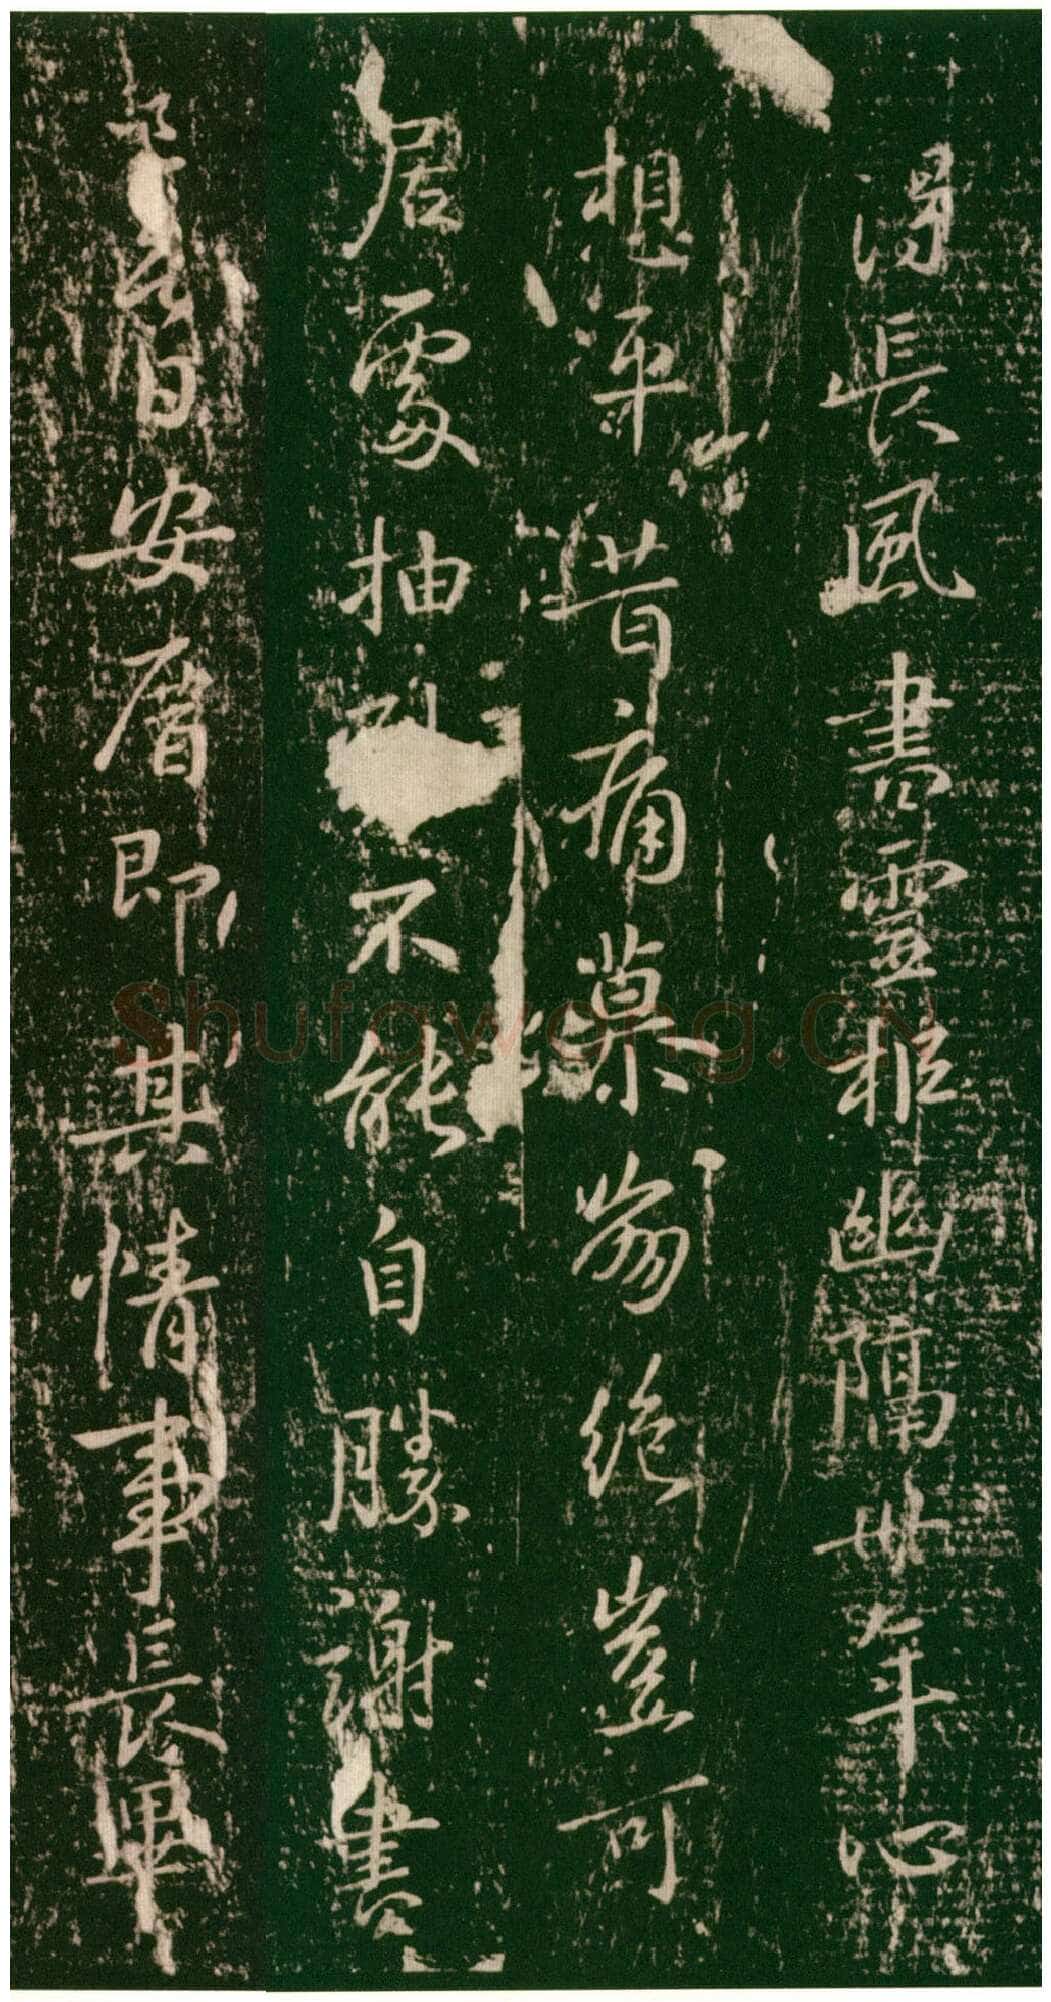 得長風書靈柩幽隔卅年心
想平昔痛慕崩絕豈可
居處抽不能自勝謝書
安厝即其情事長畢
Shufawang.CN